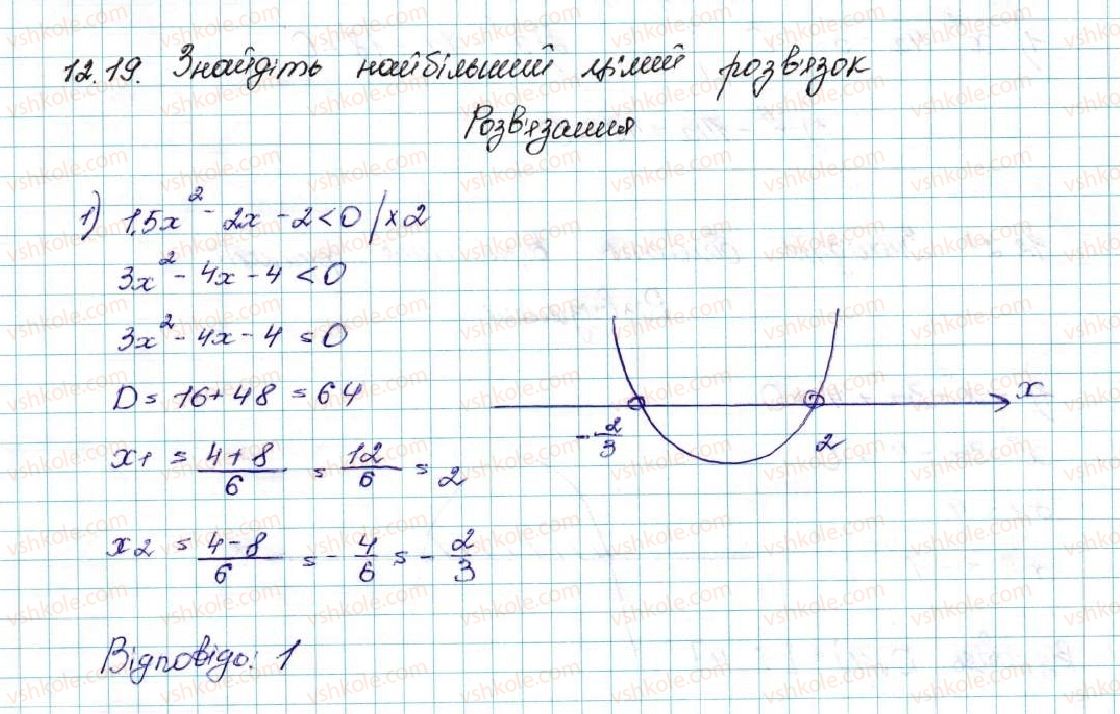 12.19. Знайдіть найбільший цілий розв'язок
Розв'язання
1) 1,5x² - 2x - 2 < 0 / × 2
3x² - 4x - 4 < 0
3x² - 4x - 4 = 0
D = 16 + 48 = 64
x1 = 4+8/6 = 12/6 = 2
x2 = 4-8/6 = - 4/6 = - 2/3
-2/3 2 x
Відповідь: 1
vshkole.com